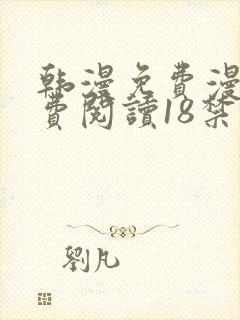 韩漫免費漫
費閱讀18禁
劉凡